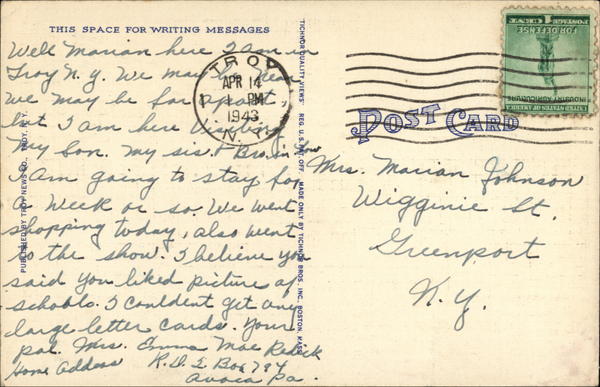 THIS SPACE FOR WRITING MESSAGES
Well Marian here I am in
Troy N.Y. We may be near
we may be far apart,
but I am here visiting
my Son. my sis & Bro. in law
I am going to stay for
a week or so. We went
shopping today, also went
to the show. I believe you
said you liked picture of
schools. I couldent get any
large letter cards. Your
pal. Mrs. Emma Mae Redick
Home Address R.D. 2 Box 794
Avoca Pa.
PUBLISHED BY TROY NEWS CO., TROY, N.Y.
TICHNOR QUALITY VIEWS REG. U.S. PAT. OFF. MADE ONLY BY TICHNOR BROS. INC., BOSTON, MASS.
TROY
APR 14
1 PM
1943
N.Y.
1 CENT POSTAGE 1
FOR DEFENSE
INDUSTRY AGRICULTURE
UNITED STATES OF AMERICA
POST CARD
Mrs. Marian Johnson
Wigginie St.
Greenport
N.Y.